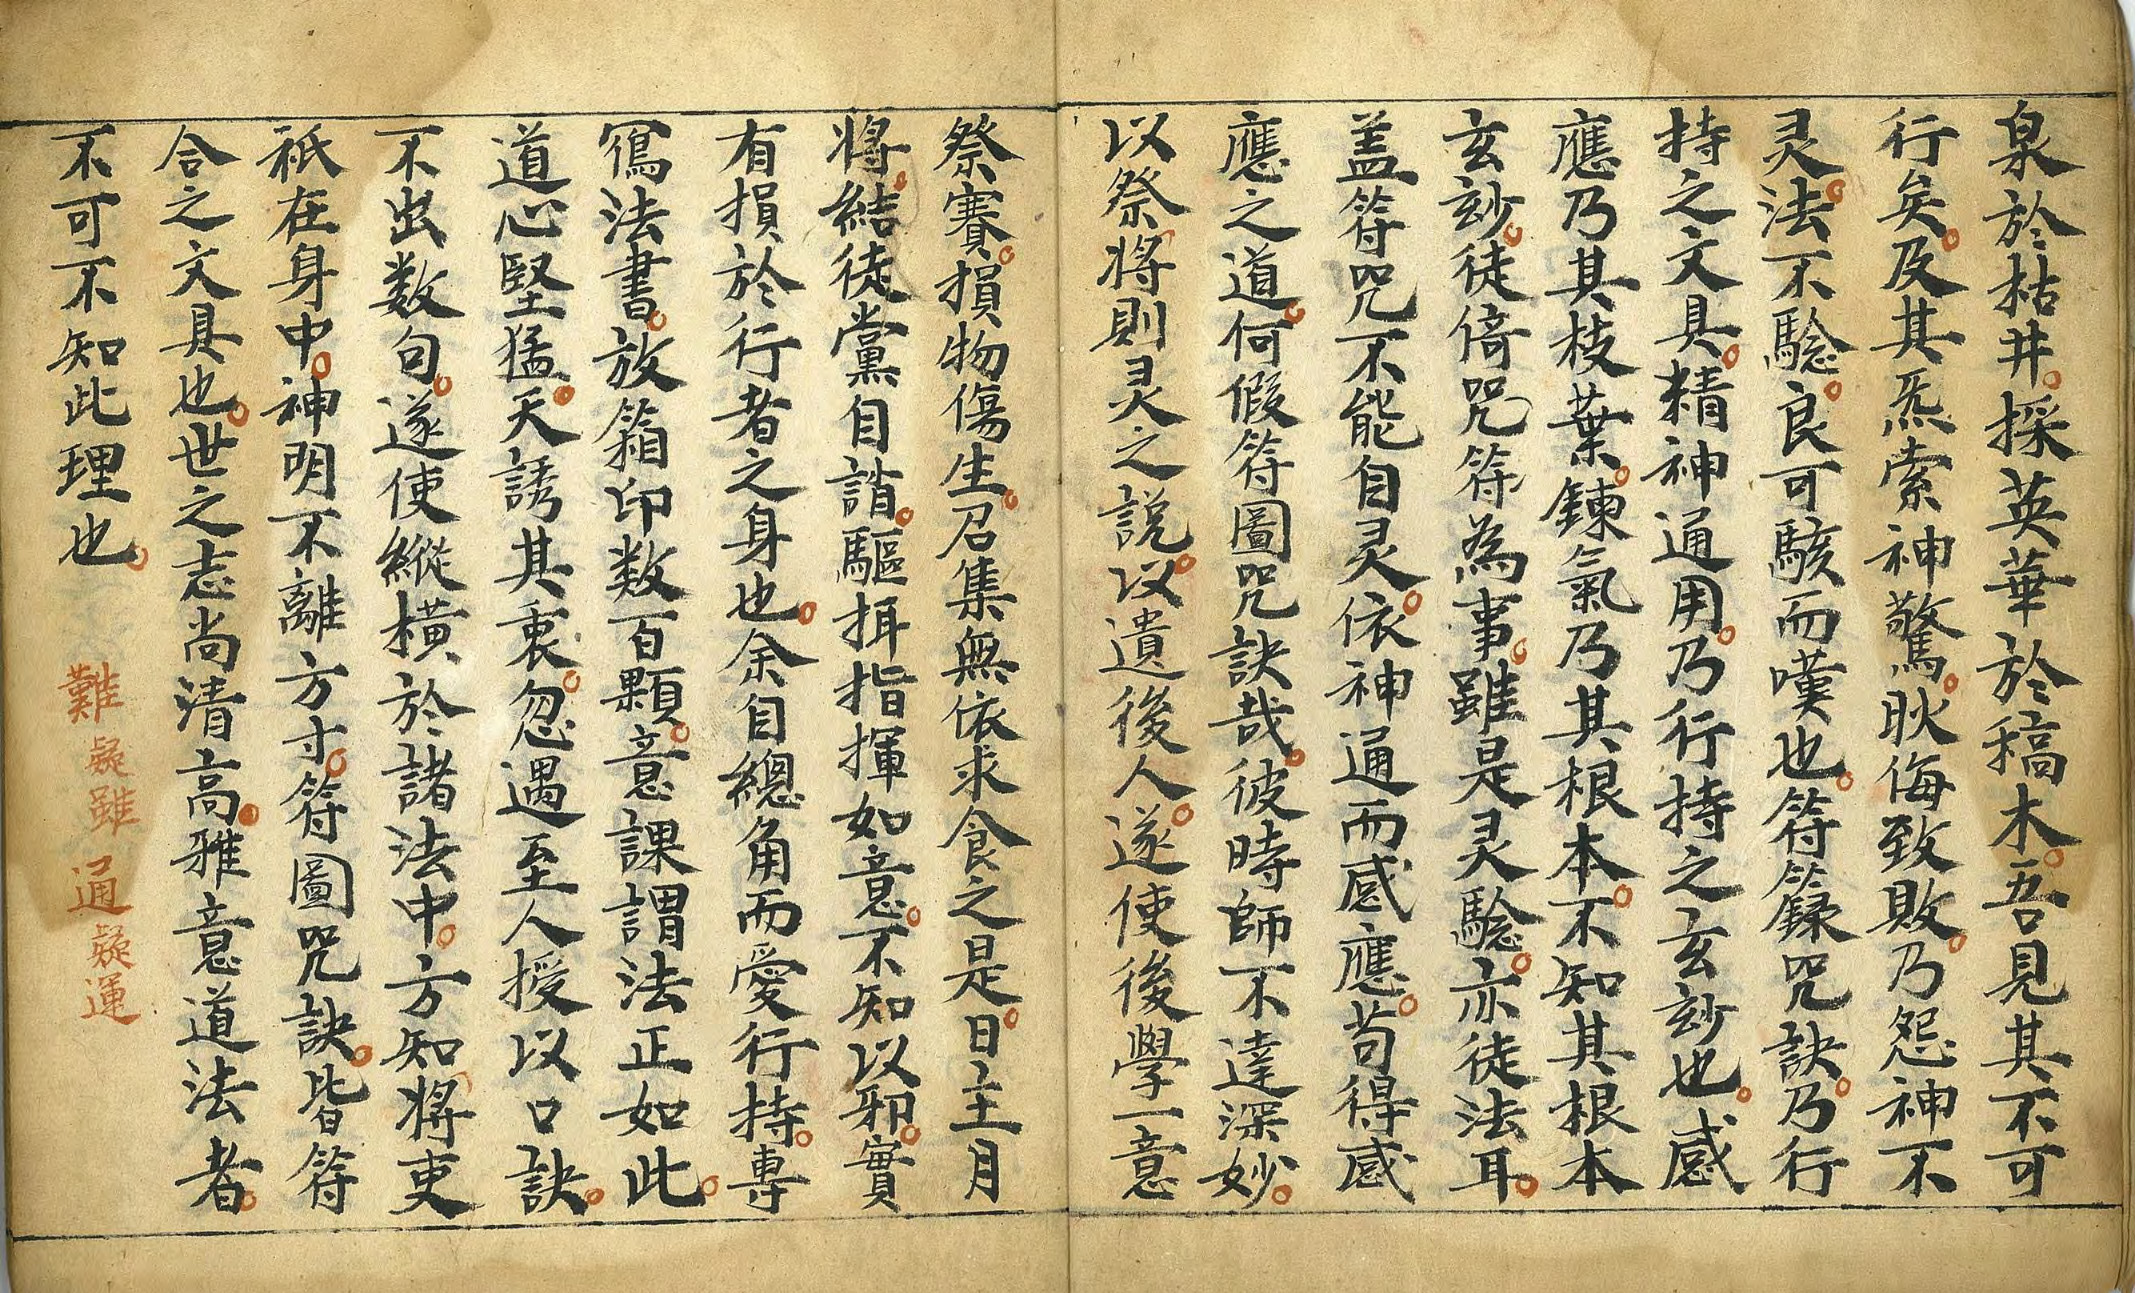 泉於枯井。採英華於稿木。吾見其不可
行矣。及其炁索神驚。耿侮致敗。乃怨神不
灵。法不騐。良可駭而嘆也。符籙咒訣。乃行
持之文具。精神通用。乃行持之玄玅也。感
應乃其枝葉。鍊氣乃其根本。不知其根本
玄玅。徒倚咒符為事。雖是灵騐。亦徒法耳。
盖符咒不能自灵。依神通而感應。苟得感
應之道。何假符圖咒訣哉。彼時師不達深妙。
以祭將則灵之説。以遺後人。遂使後學一意
祭賽。損物傷生。召集無依求食之是。日主月
將。結徒黨自誚。驅揖指揮如意。不知以邪。實
有損於行者之身也。余自總角而愛行持。專
冩法書。放箱印数百顆。意課謂法正如此。
道心堅猛。天誘其衷。忽遇至人授以口訣。
不出数句。遂使縱横於諸法中。方知將吏
祇在身中。神明不離方寸。符圖咒訣。皆符
合之文具也。世之志尚清高。雅意道法者。
不可不知此理也。
難疑雖 通疑運